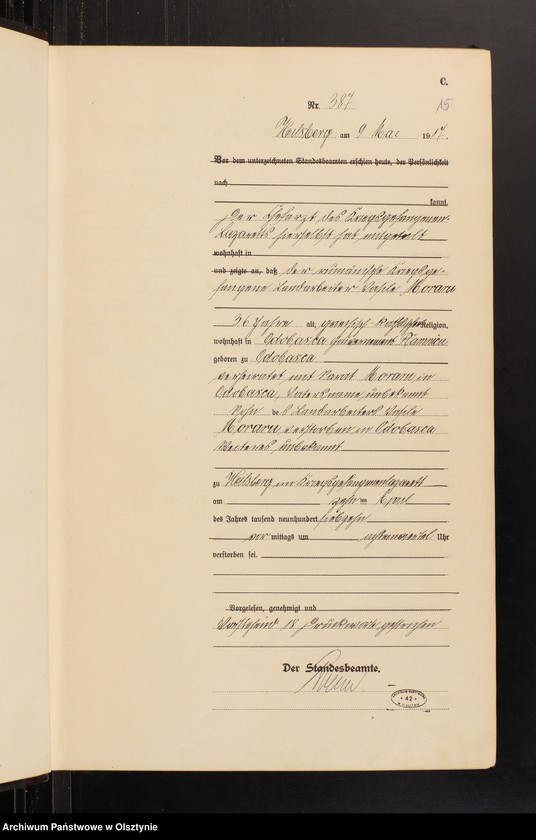 C.
Nr. 387
15
Heilsberg am 9 Mai 1917.
Vor dem unterzeichneten Standesbeamten erschien heute, der Persönlichkeit
nach
kannt,
Der Chefarzt des Kriegsgefangenen-
Lazaretts hierselbst hat mitgeteilt
wohnhaft in
und zeigte an, daß der rumänische Kriegsge-
fangene Landarbeiter Vasile Moraru
36 Jahre alt, griechisch katholischer Religion,
wohnhaft in Odobasca Gouvernement
geboren zu Odobasca
verheiratet mit Moraru in
Odobasca, Vatersname unbekannt
Sohn des Landarbeiters Vasile
Moraru, verstorben in Odobasca
Weiteres unbekannt
zu Heilsberg im Kriegsgefangenenlazarett
am zehnten April
des Jahres tausend neunhundert siebzehn
vormittags um Uhr
verstorben sei.
Vorgelesen, genehmigt und
Vorstehend 18 Druckworte gestrichen
Der Standesbeamte.
42
Archiwum Państwowe w Olsztynie